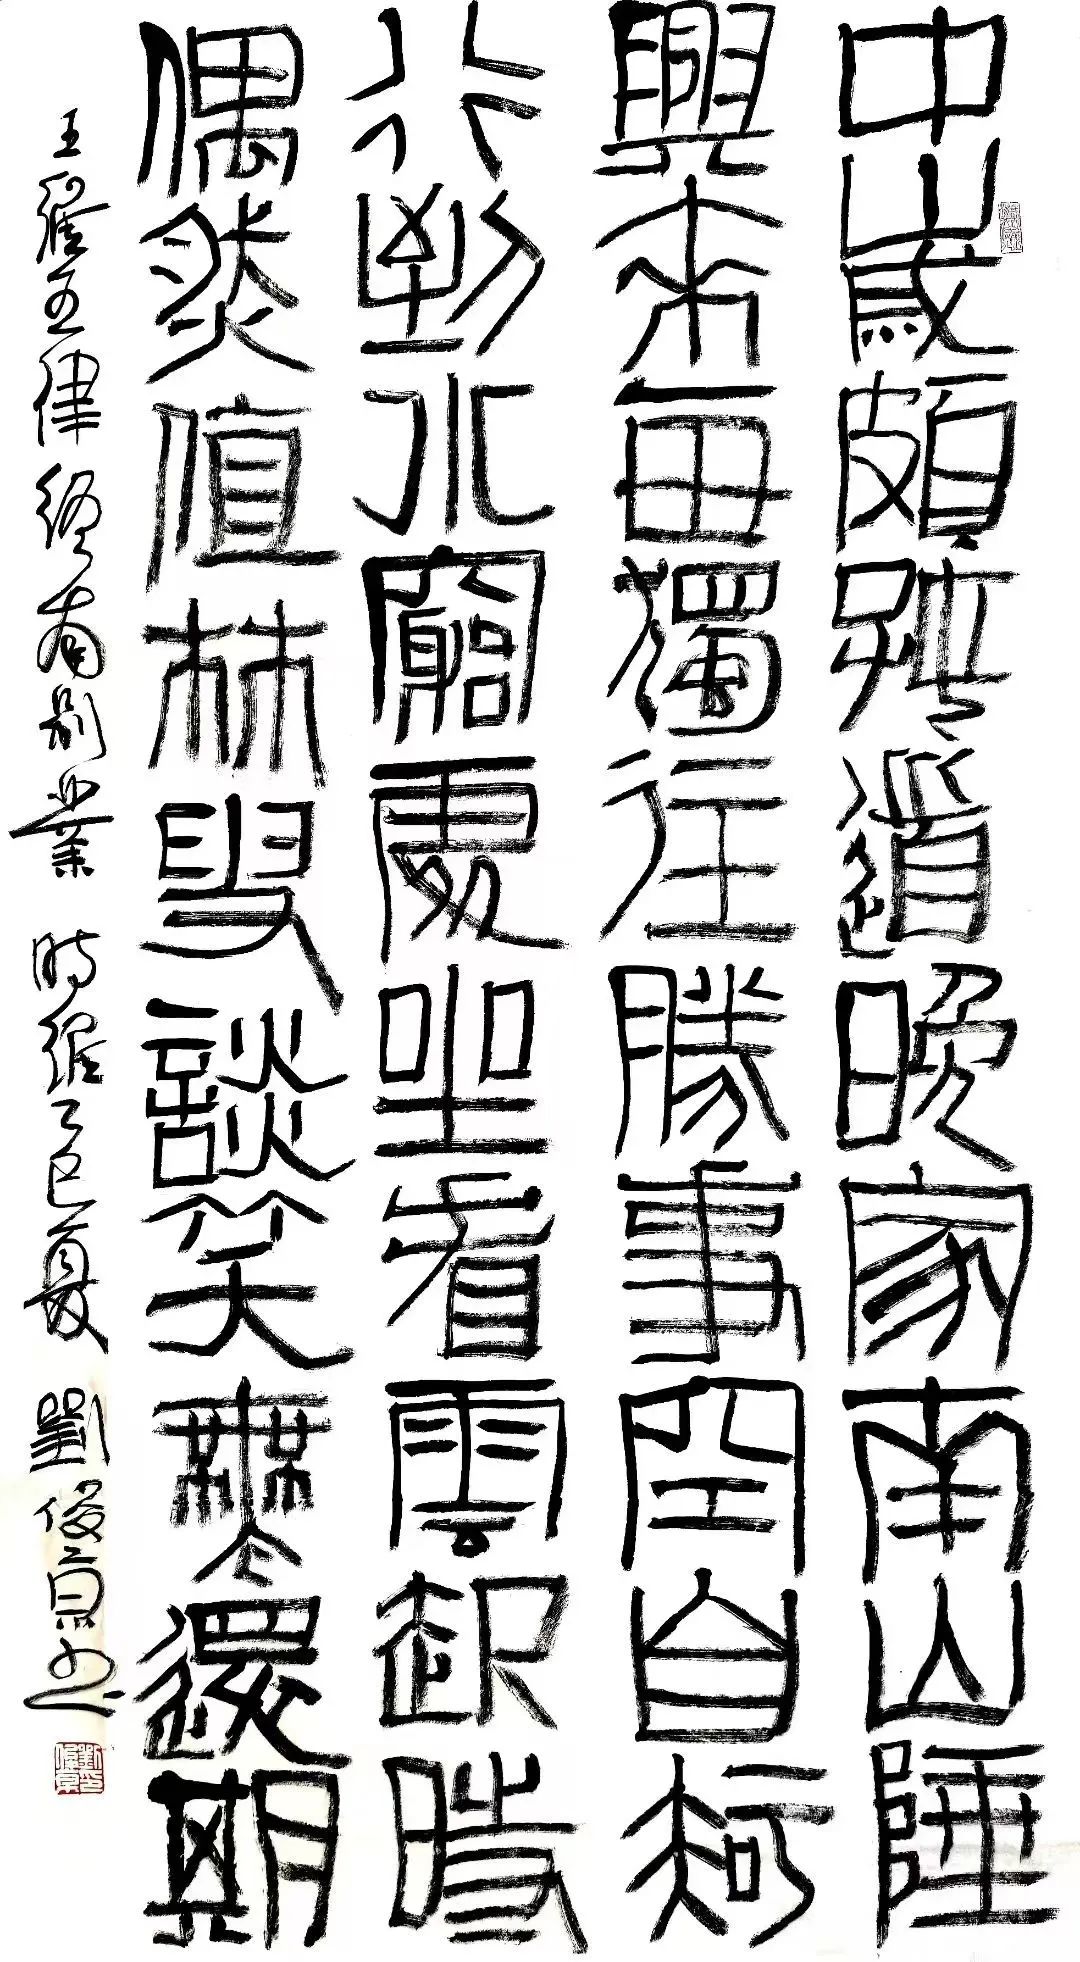 中歲頗好道晚家南山陲
興來每獨往勝事空自知
行到水窮處坐看雲起時
偶然值林叟談笑無還期
王維五律終南別業 時維乙巳夏 劉俊京书